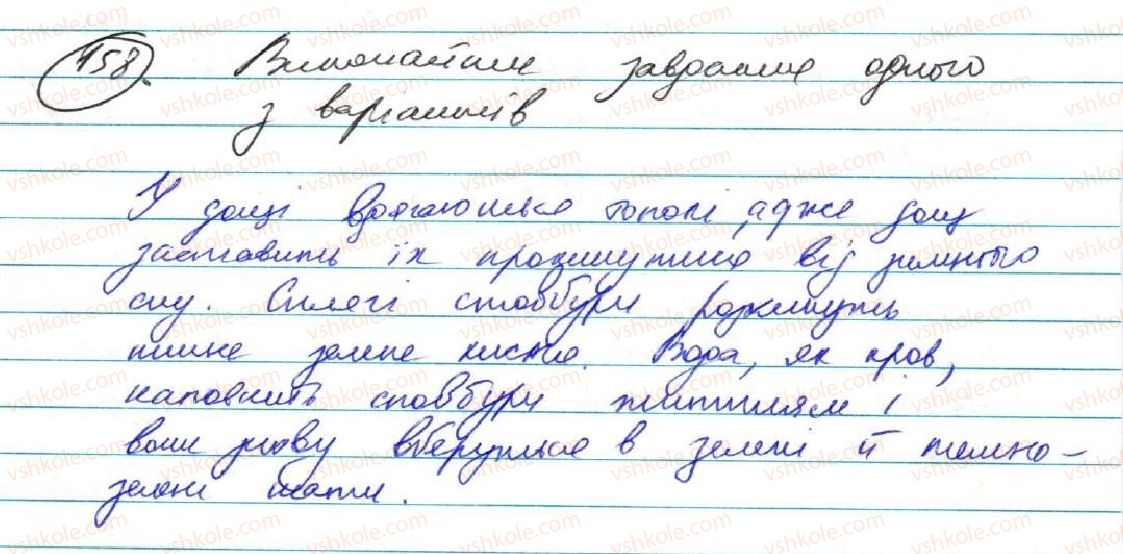 158. Виконайте завдання одного
з варіантів
У дощі вдягаються тополі, адже дощ
заставить їх прокинутися від зимнього
сну. Сплячі стовбури розкинуть
пишне зелене листя. Вода, як кров,
наповнить стовбури життям і
вони знову вберуться в зелені й темно-
зелені шати.